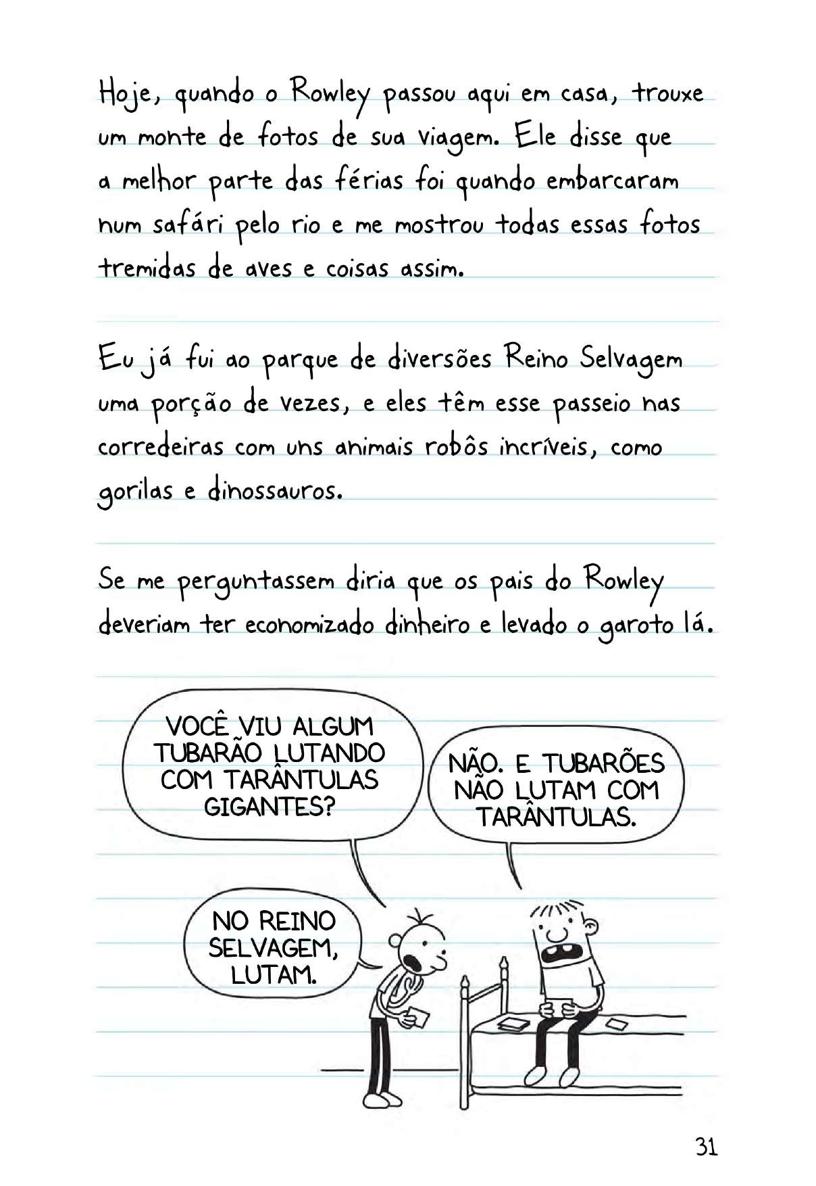 Hoje, quando o Rowley passou aqui em casa, trouxe
um monte de fotos de sua viagem. Ele disse que
a melhor parte das férias foi quando embarcaram
num safári pelo rio e me mostrou todas essas fotos
tremidas de aves e coisas assim.
Eu já fui ao parque de diversões Reino Selvagem
uma porção de vezes, e eles têm esse passeio nas
corredeiras com uns animais robôs incríveis, como
gorilas e dinossauros.
Se me perguntassem diria que os pais do Rowley
deveriam ter economizado dinheiro e levado o garoto lá.
VOCÊ VIU ALGUM
TUBARÃO LUTANDO
COM TARÂNTULAS
GIGANTES?
NÃO. E TUBARÕES
NÃO LUTAM COM
TARÂNTULAS.
NO REINO
SELVAGEM,
LUTAM.
31